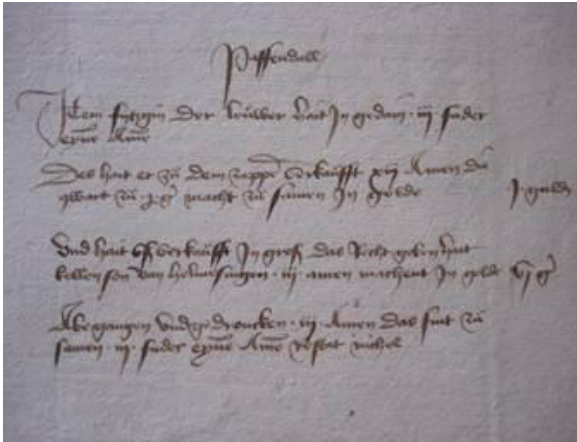 Paffendall
Item fytzgin der leuwer hait In gedain · iii · fuder
eyne Ame
Des hait er zu dem zappe verkaufft xij Amen die
qwart zu gr macht zu samen In gelde
Und hait verkaufft In groß das Recht geben hait
kellen son van helmsingen · iii · amen machent In gelde vi gr
Abegangen und gedroncken · iii · Amen das sint zu
samen · iii · fuder eyne Ame restat nichel